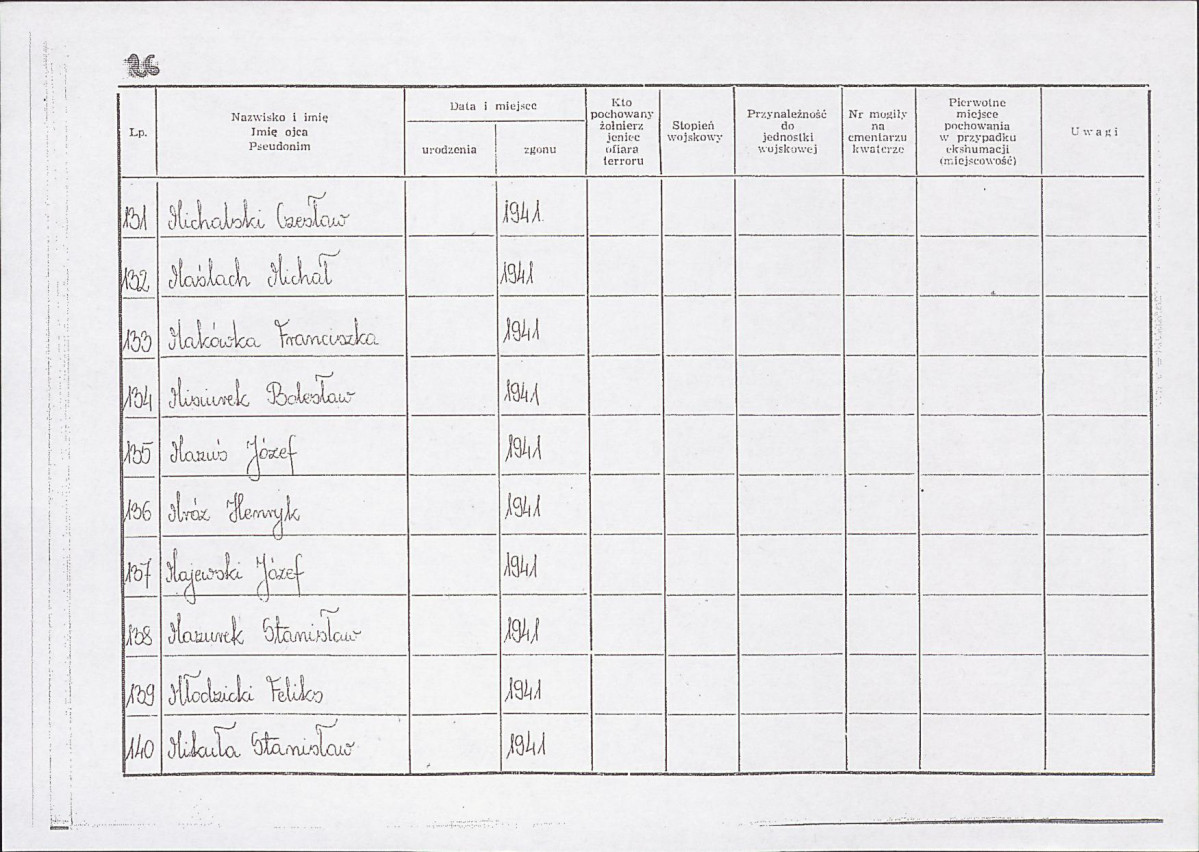 26
Lp. Nazwisko i imię Imię ojca Pseudonim Data i miejsce urodzenia zgonu Kto pochowany żołnierz jeniec ofiara terroru Stopień wojskowy Przynależność do jednostki wojskowej Nr mogiły na cmentarzu kwaterze Pierwotne miejsce pochowania w przypadku ekshumacji (miejscowość) Uwagi
131 Michalski Czesław 1941
132 Maślach Michał 1941
133 Makówka Franciszka 1941
134 Misiurek Bolesław 1941
135 Maruś Józef 1941
136 Mróz Henryk 1941
137 Majewski Józef 1941
138 Mazurek Stanisław 1941
139 Młodzicki Feliks 1941
140 Mikuła Stanisław 1941